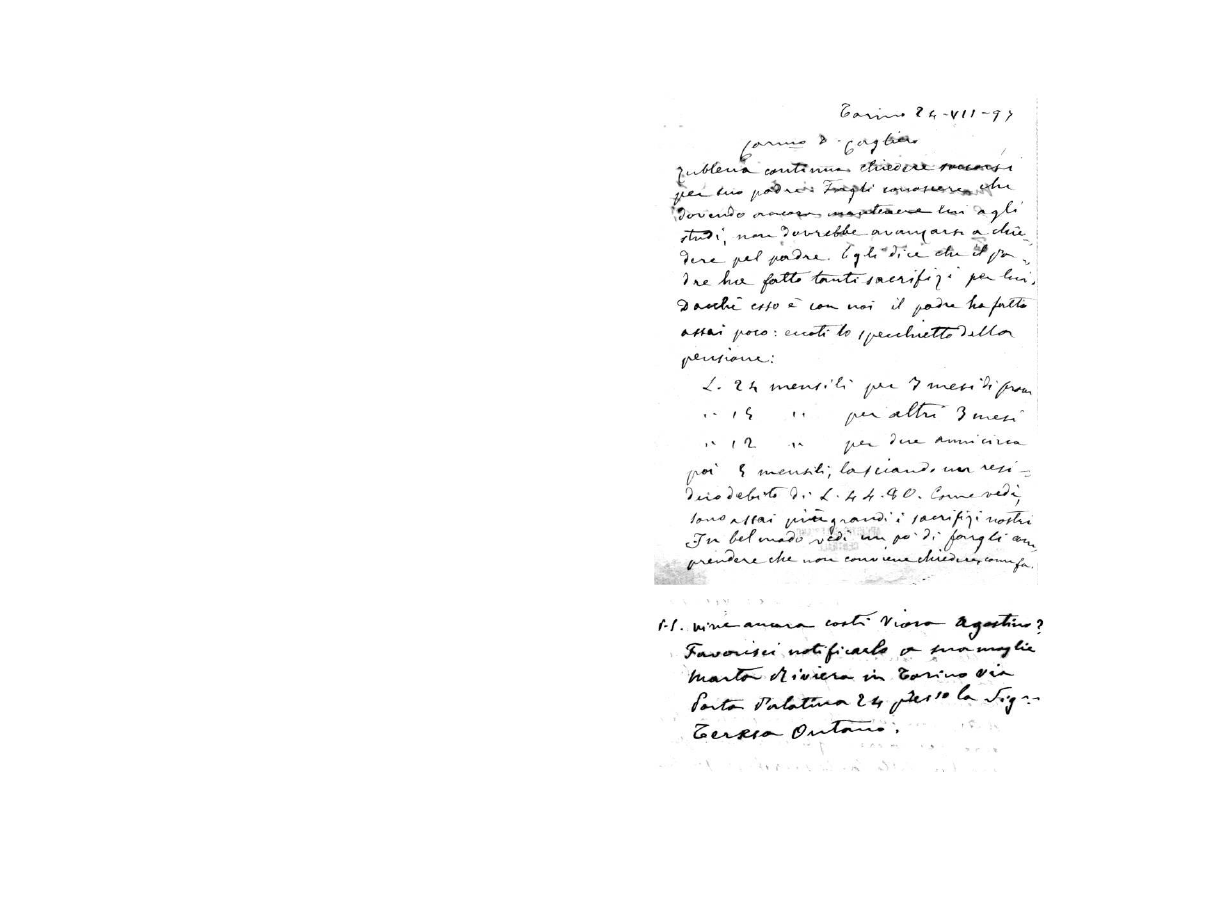 Torino 24-VII-97
Carmo D. Gogliero
Zublena continua chiedere soccorsi
per suo padre. Fagli conoscere che
dovendo ancora mantenere lui agli
studi, non dovrebbe avanzarsi a chie-
dere pel padre. Egli dice che il pa-
dre ha fatto tanti sacrifizi per lui.
Dacchè esso è con noi il padre ha fatto
assai poco: eccoti lo specchietto della
pensione:
L. 24 mensili per 7 mesi di
" 15 " per altri 3 mesi
" 12 " per due anni circa
poi 5 mensili, lasciando un resi-
duo debito di L. 44.80. Come vedi,
sono assai più grandi i sacrifizi nostri
In bel modo vedi un po' di fargli com
prendere che non conviene chiedere, come fa.
P.S. vive ancora costì Viora Agostino?
Favorisci notificarlo a sua moglie
Marta Riviera in Torino via
Porta Palatina 24 presso la Sig.ra
Teresa Ontano.